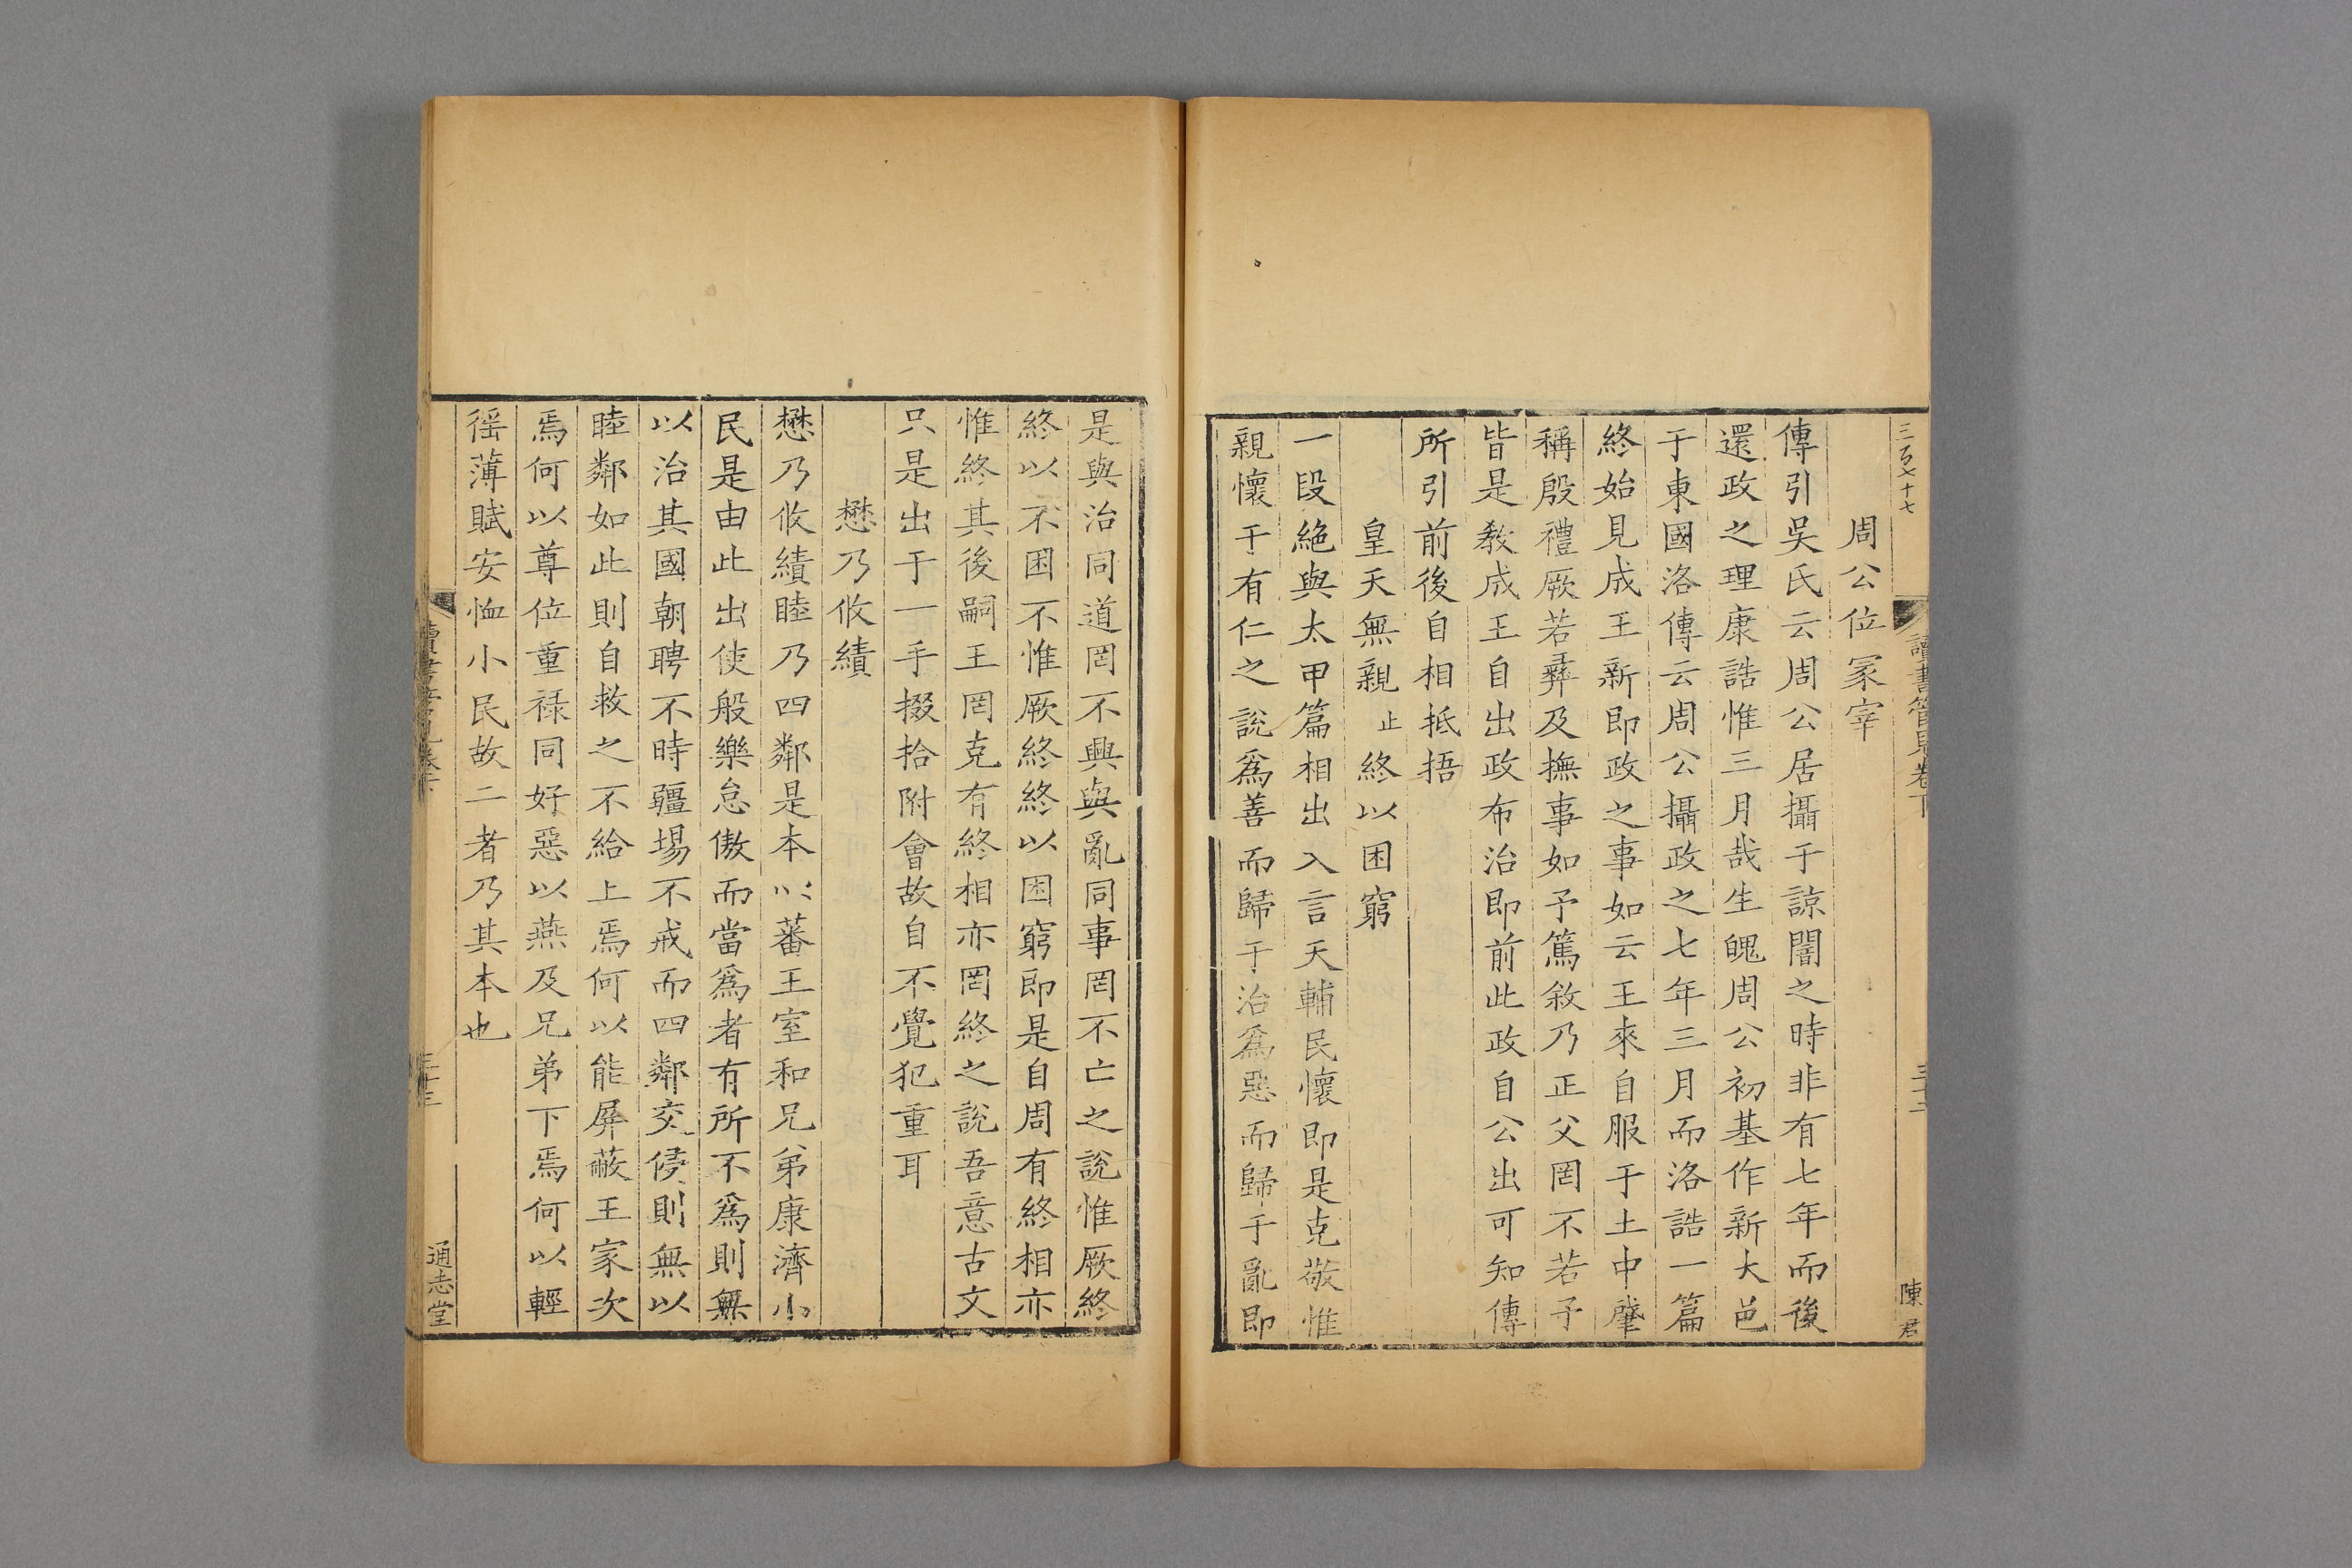 三百七十七
讀書管見卷下
三十二
陳君
周公位冢宰
傳引吳氏云周公居攝于諒闇之時非有七年而後
還政之理康誥惟三月哉生魄周公初基作新大邑
于東國洛傳云周公攝政之七年三月而洛誥一篇
終始見成王新即政之事如云王來自服于土中肇
稱殷禮厥若彝及撫事如予篤敘乃正父罔不若予
皆是教成王自出政布治即前此政自公出可知傳
所引前後自相抵捂
皇天無親止終以困窮
一段絕與太甲篇相出入言天輔民懷即是克敬惟
親懷于有仁之說爲善而歸于治爲惡而歸于亂即
是與治同道罔不興與亂同事罔不亡之說惟厥終
終以不困不惟厥終終以困窮即是自周有終相亦
惟終其後嗣王罔克有終相亦罔終之說吾意古文
只是出于一手掇拾附會故自不覺犯重耳
懋乃攸績
懋乃攸績睦乃四鄰是本以蕃王室和兄弟康濟小
民是由此出使般樂怠傲而當爲者有所不爲則無
以治其國朝聘不時疆場不戒而四鄰交侵則無以
睦鄰如此則自救之不給上焉何以能屏蔽王家次
焉何以尊位重祿同好惡以燕及兄弟下焉何以輕
徭薄賦安恤小民故二者乃其本也
讀書管見卷下
三十三
通志堂